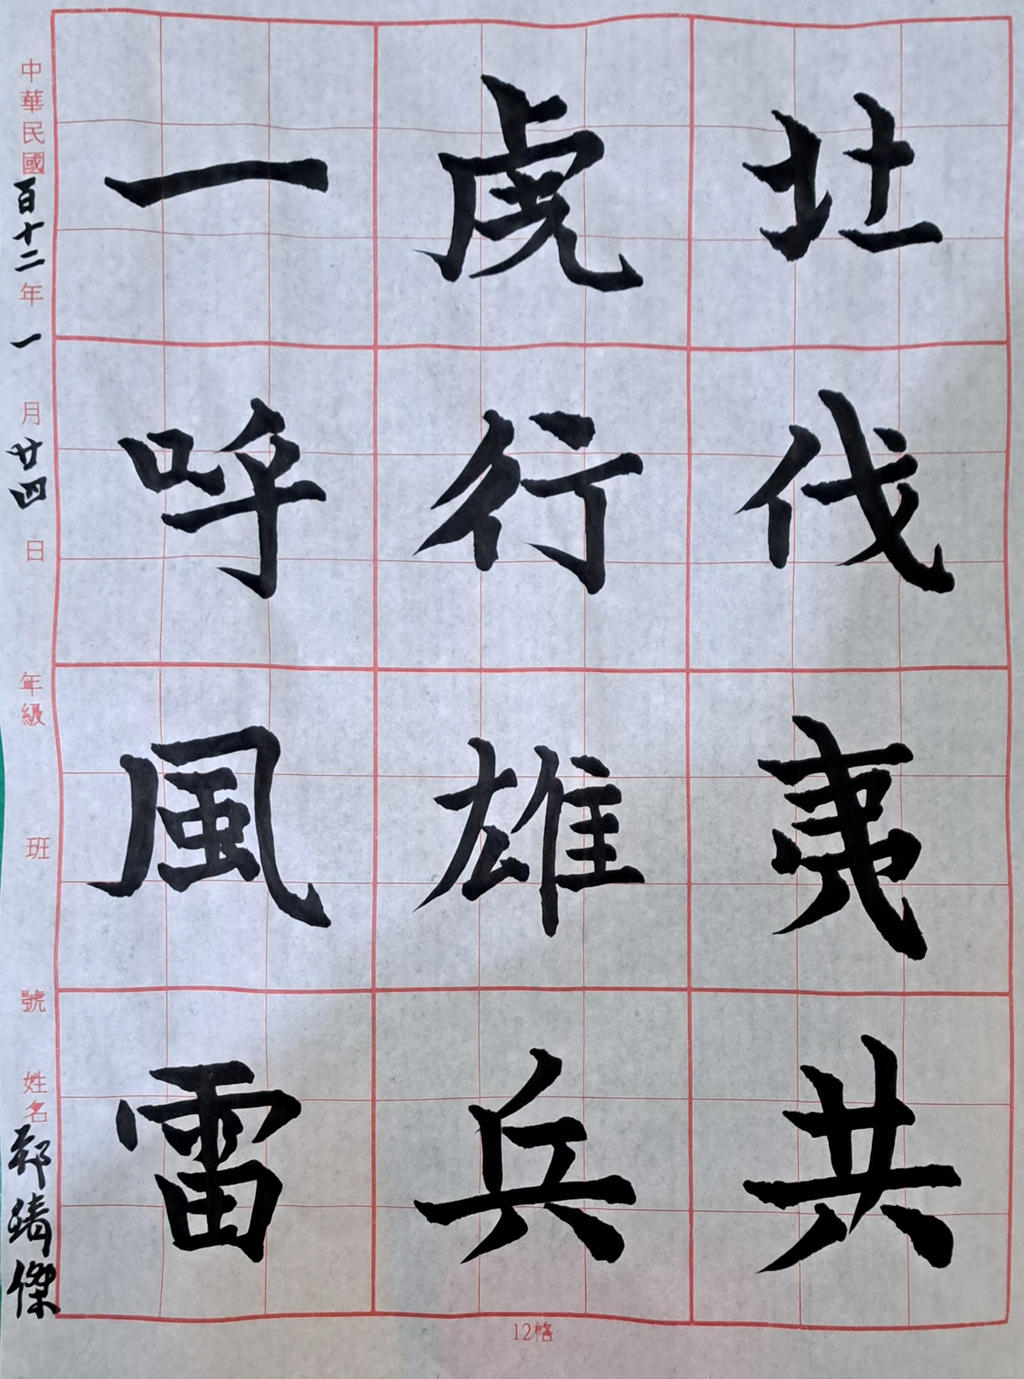 北伐夷共
虎行雄兵
一呼風雷
中華民國百十二年一月廿四日 年級 班 號 姓名 靖傑
12格